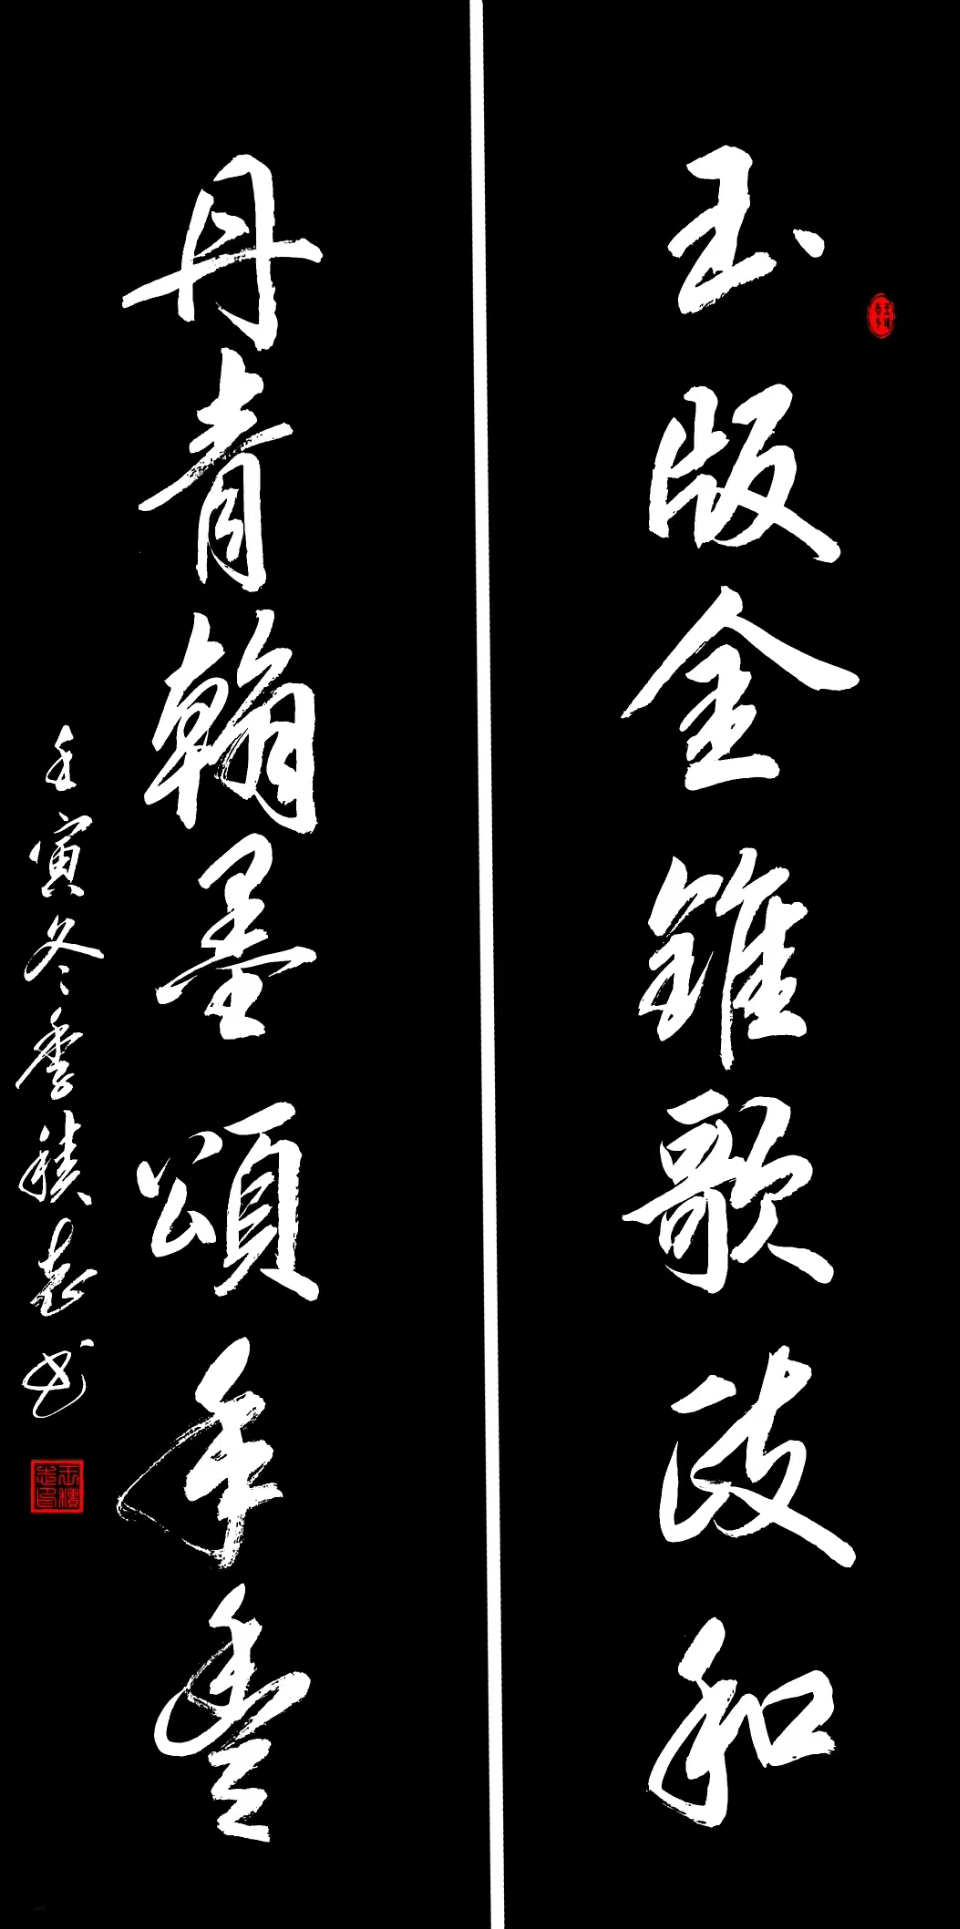 玉版金錐歌政和
丹青翰墨頌年豐
壬寅冬季積志书